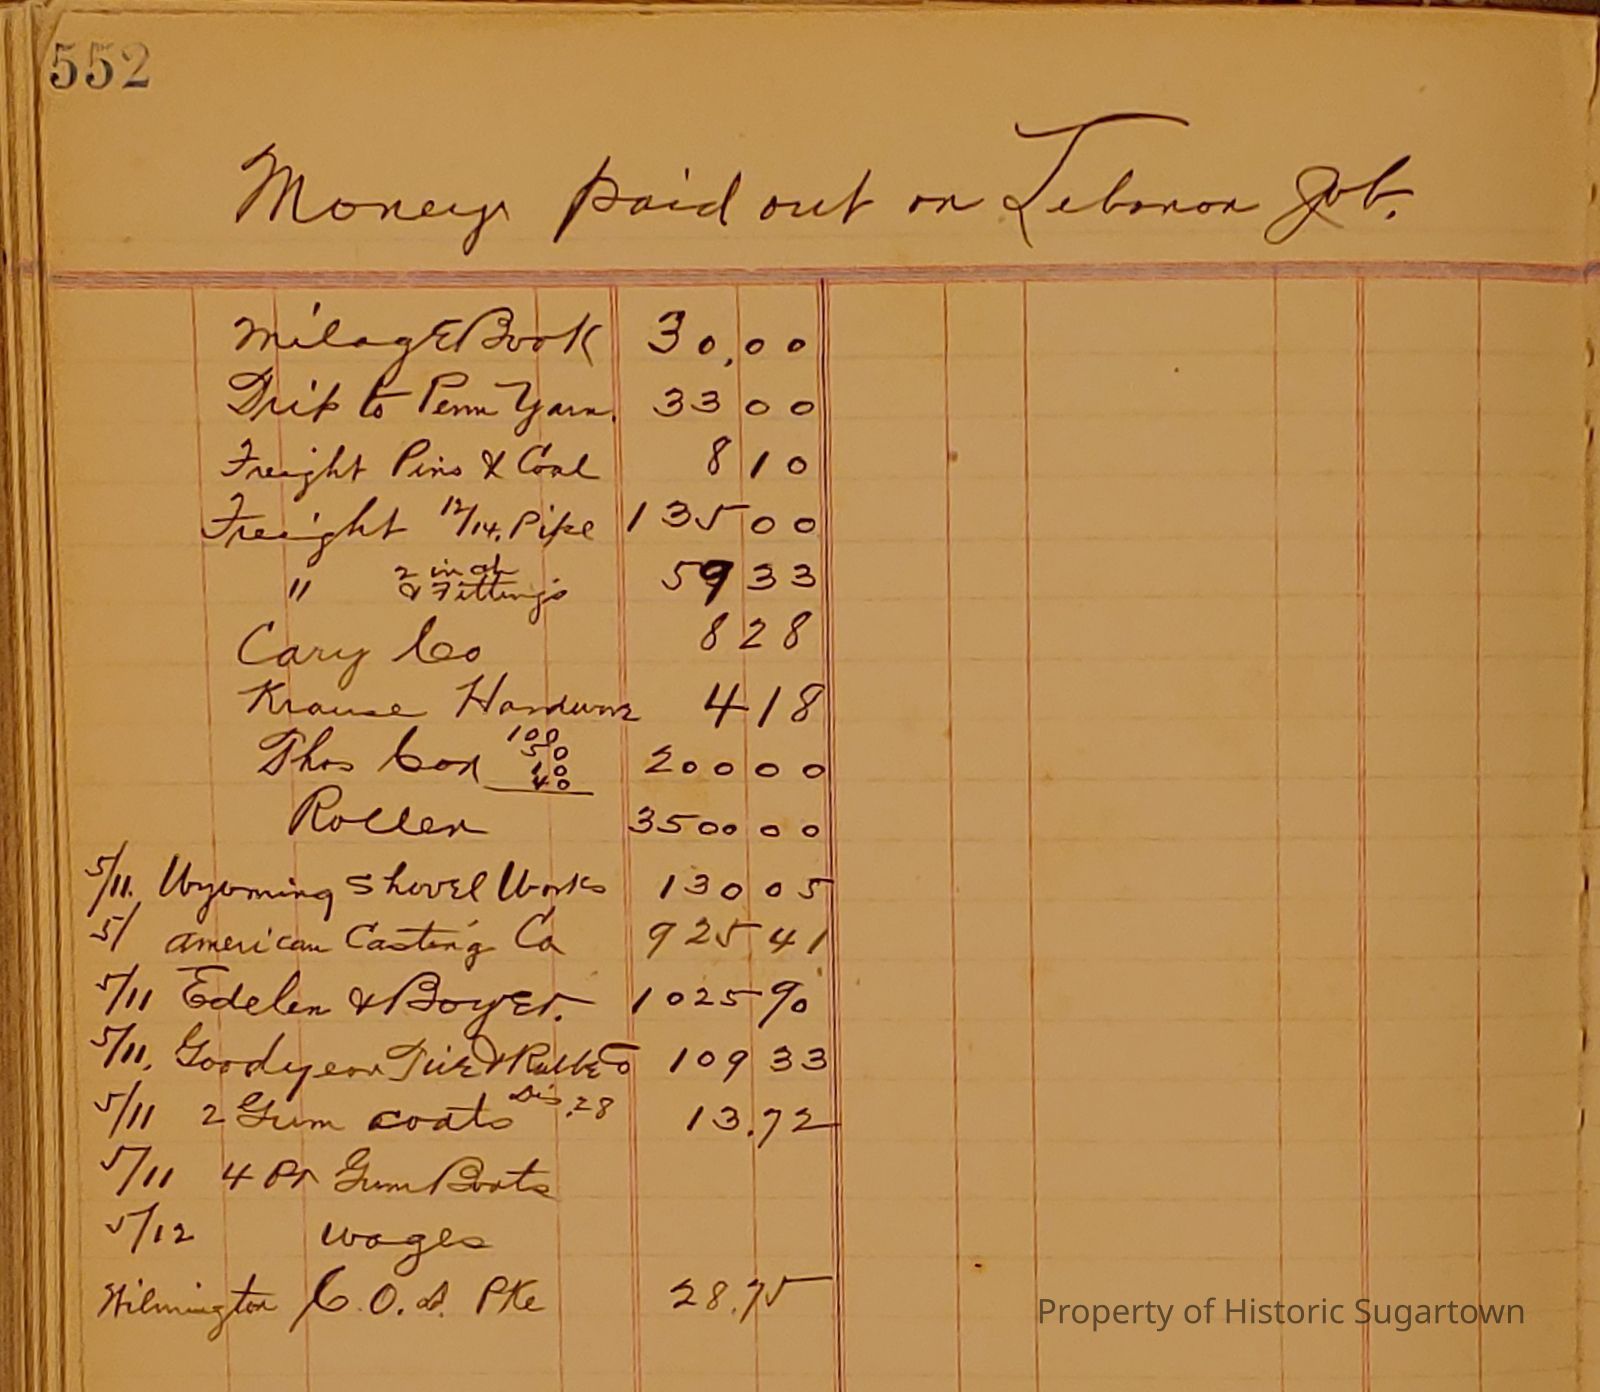 552
Moneys paid out on Lebanon Job.
MilagE Book 30.00
Trip to Penn Yann. 33 00
Freight Pins & Coal 8 10
Freight 12/14. Pipe 135 00
" 2 inch & Fittings 59 33
Cary Co 8 28
Krause Hardware 4 18
Thos Cox 100 50 10 40 200 00
Roller 3500 00
5/11. Wyoming ShovEl Works 130 05
5/ American Casting Co 925 41
5/11 Edelen & BoyEr. 1025 90
5/11. Goodyear TirE & 109 33
5/11 2 Gum coats Dis .28 13.72
5/11 4 Pr Gum Boots
5/12 Wages
Wilmington C.O.D. PKe 28.75
Property of Historic Sugartown